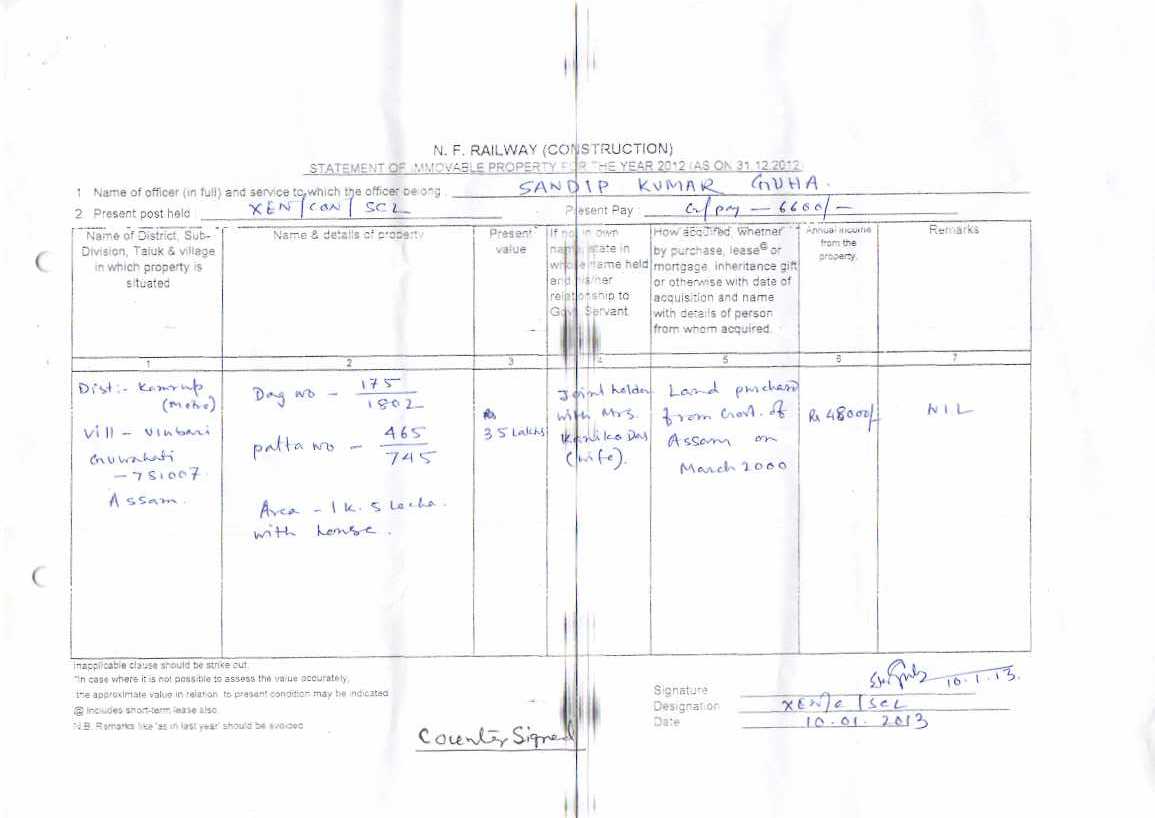 N. F. RAILWAY (CONSTRUCTION)
STATEMENT OF IMMOVABLE PROPERTY FOR THE YEAR 2012 (AS ON 31.12.2012)
1 Name of officer (in full) and service to which the officer belong : SANDIP KUMAR GUHA.
2. Present post held XEN/CON/SCL Present Pay : Gr/pay - 6600/-
Name of District, Sub-Division, Taluk & village in which property is situated
Name & details of property
Present value
If no in own name state in whose name held and his/her relationship to Govt. Servant
How acquired, whether by purchase, lease@ or mortgage, inheritance gift or otherwise with date of acquisition and name with details of person from whom acquired.
Annual income from the property.
Remarks
1 2 3 4 5 6 7
Dist:- Kamrup
(Metro)
Vill -
Guwahati
- 781007.
Assam.
Dag no - 175/1802
patta no - 465/745
Area - 1 k. 5 Lecha.
with house.
Rs
35 Lakhs
Joint holder
with Mrs.
Kanika Das
(wife).
Land purchased
from Govt. of
Assam on
March 2000
Rs 48000/-
NIL
Inapplicable clause should be strike out.
*In case where it is not possible to assess the value accurately,
the approximate value in relation to present condition may be indicated
@ Includes short-term lease also.
N.B. Remarks like 'as in last year' should be avoided
Signature 10.1.13.
Designation XEN/C/SCL
Date 10.01.2013
Counter Signed